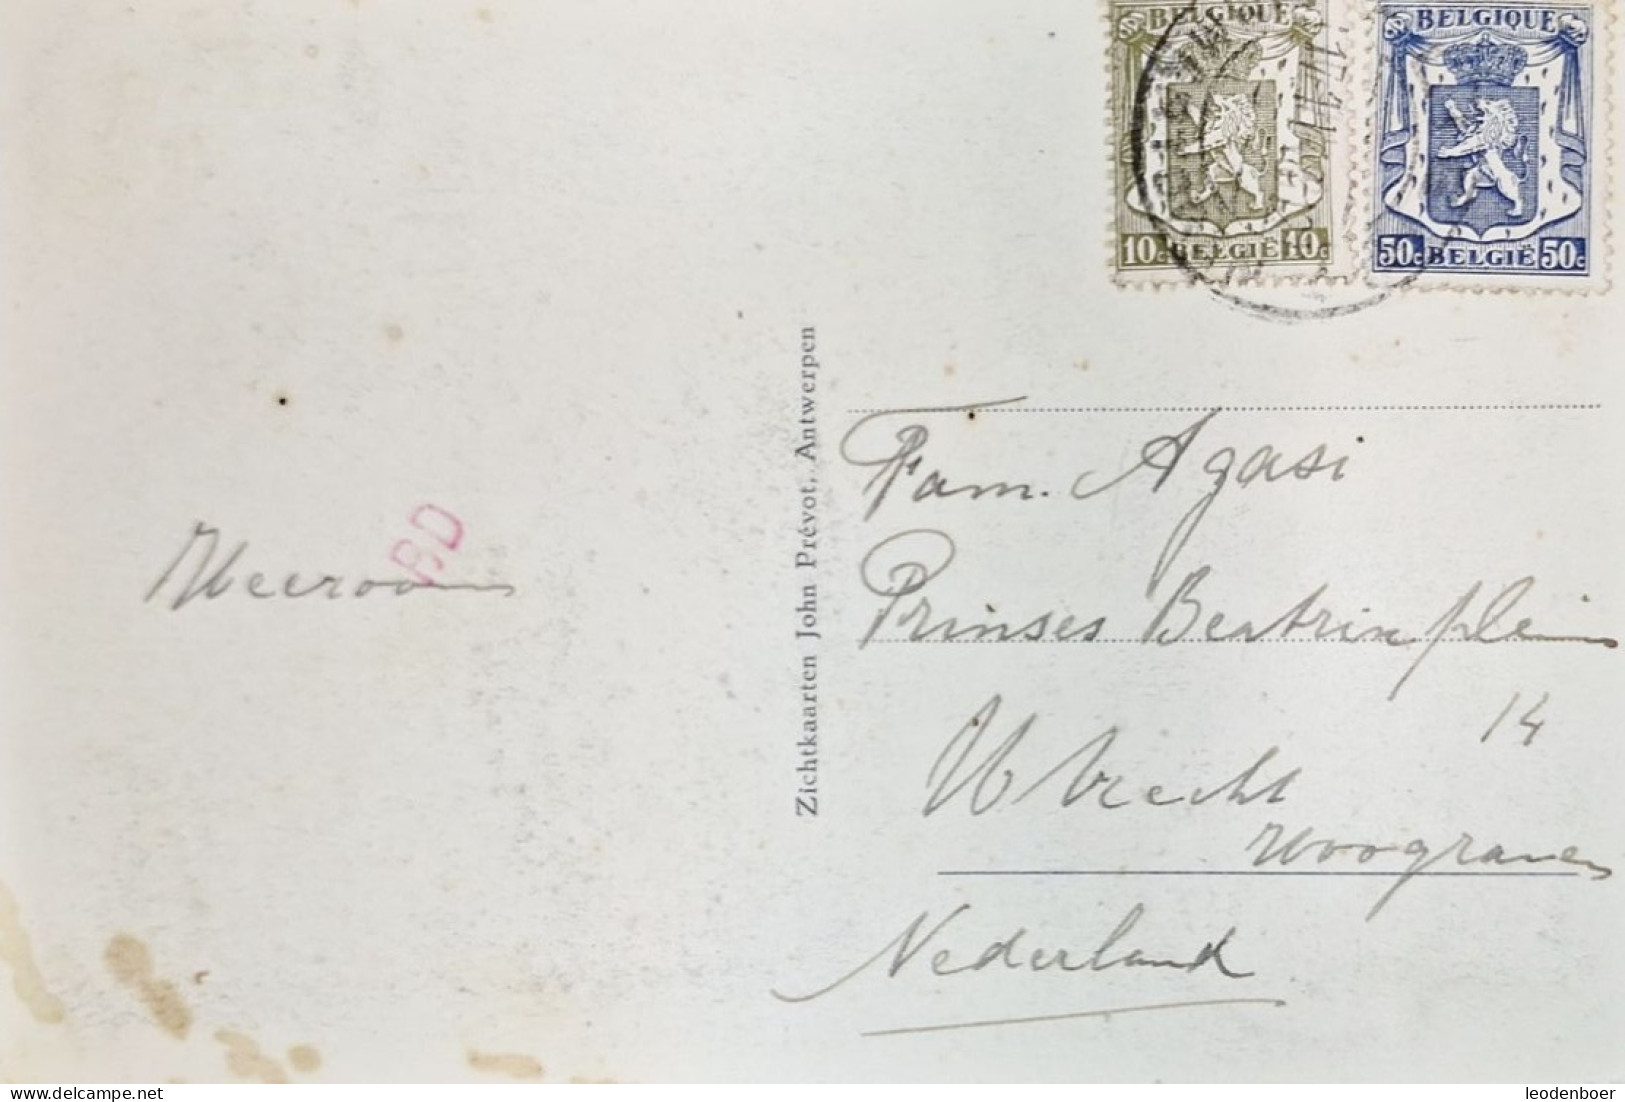 BELGIQUE
10c BELGIË 10c
BELGIQUE
50c BELGIË 50c
Zichtkaarten John Prévot, Antwerpen
RD
Fam. Agasi
Prinses Beatrixplein
14
Utrecht
Nederland
delcampe.net
leodenboer